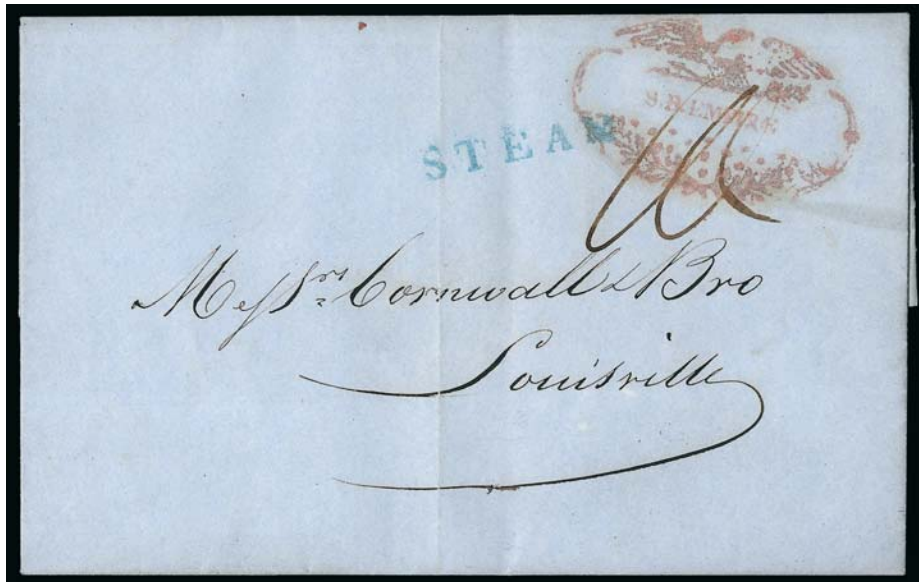 STEAM
10
Messrs. Cornwall & Bro
Louisville